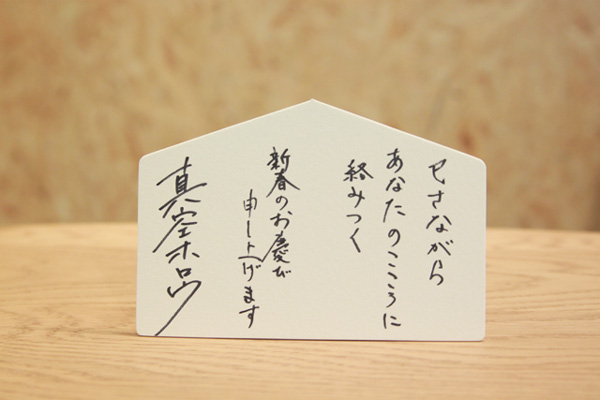 巳さながら
あなたのこころに
絡みつく
新春のお慶び
申し上げます
真空ホロウ